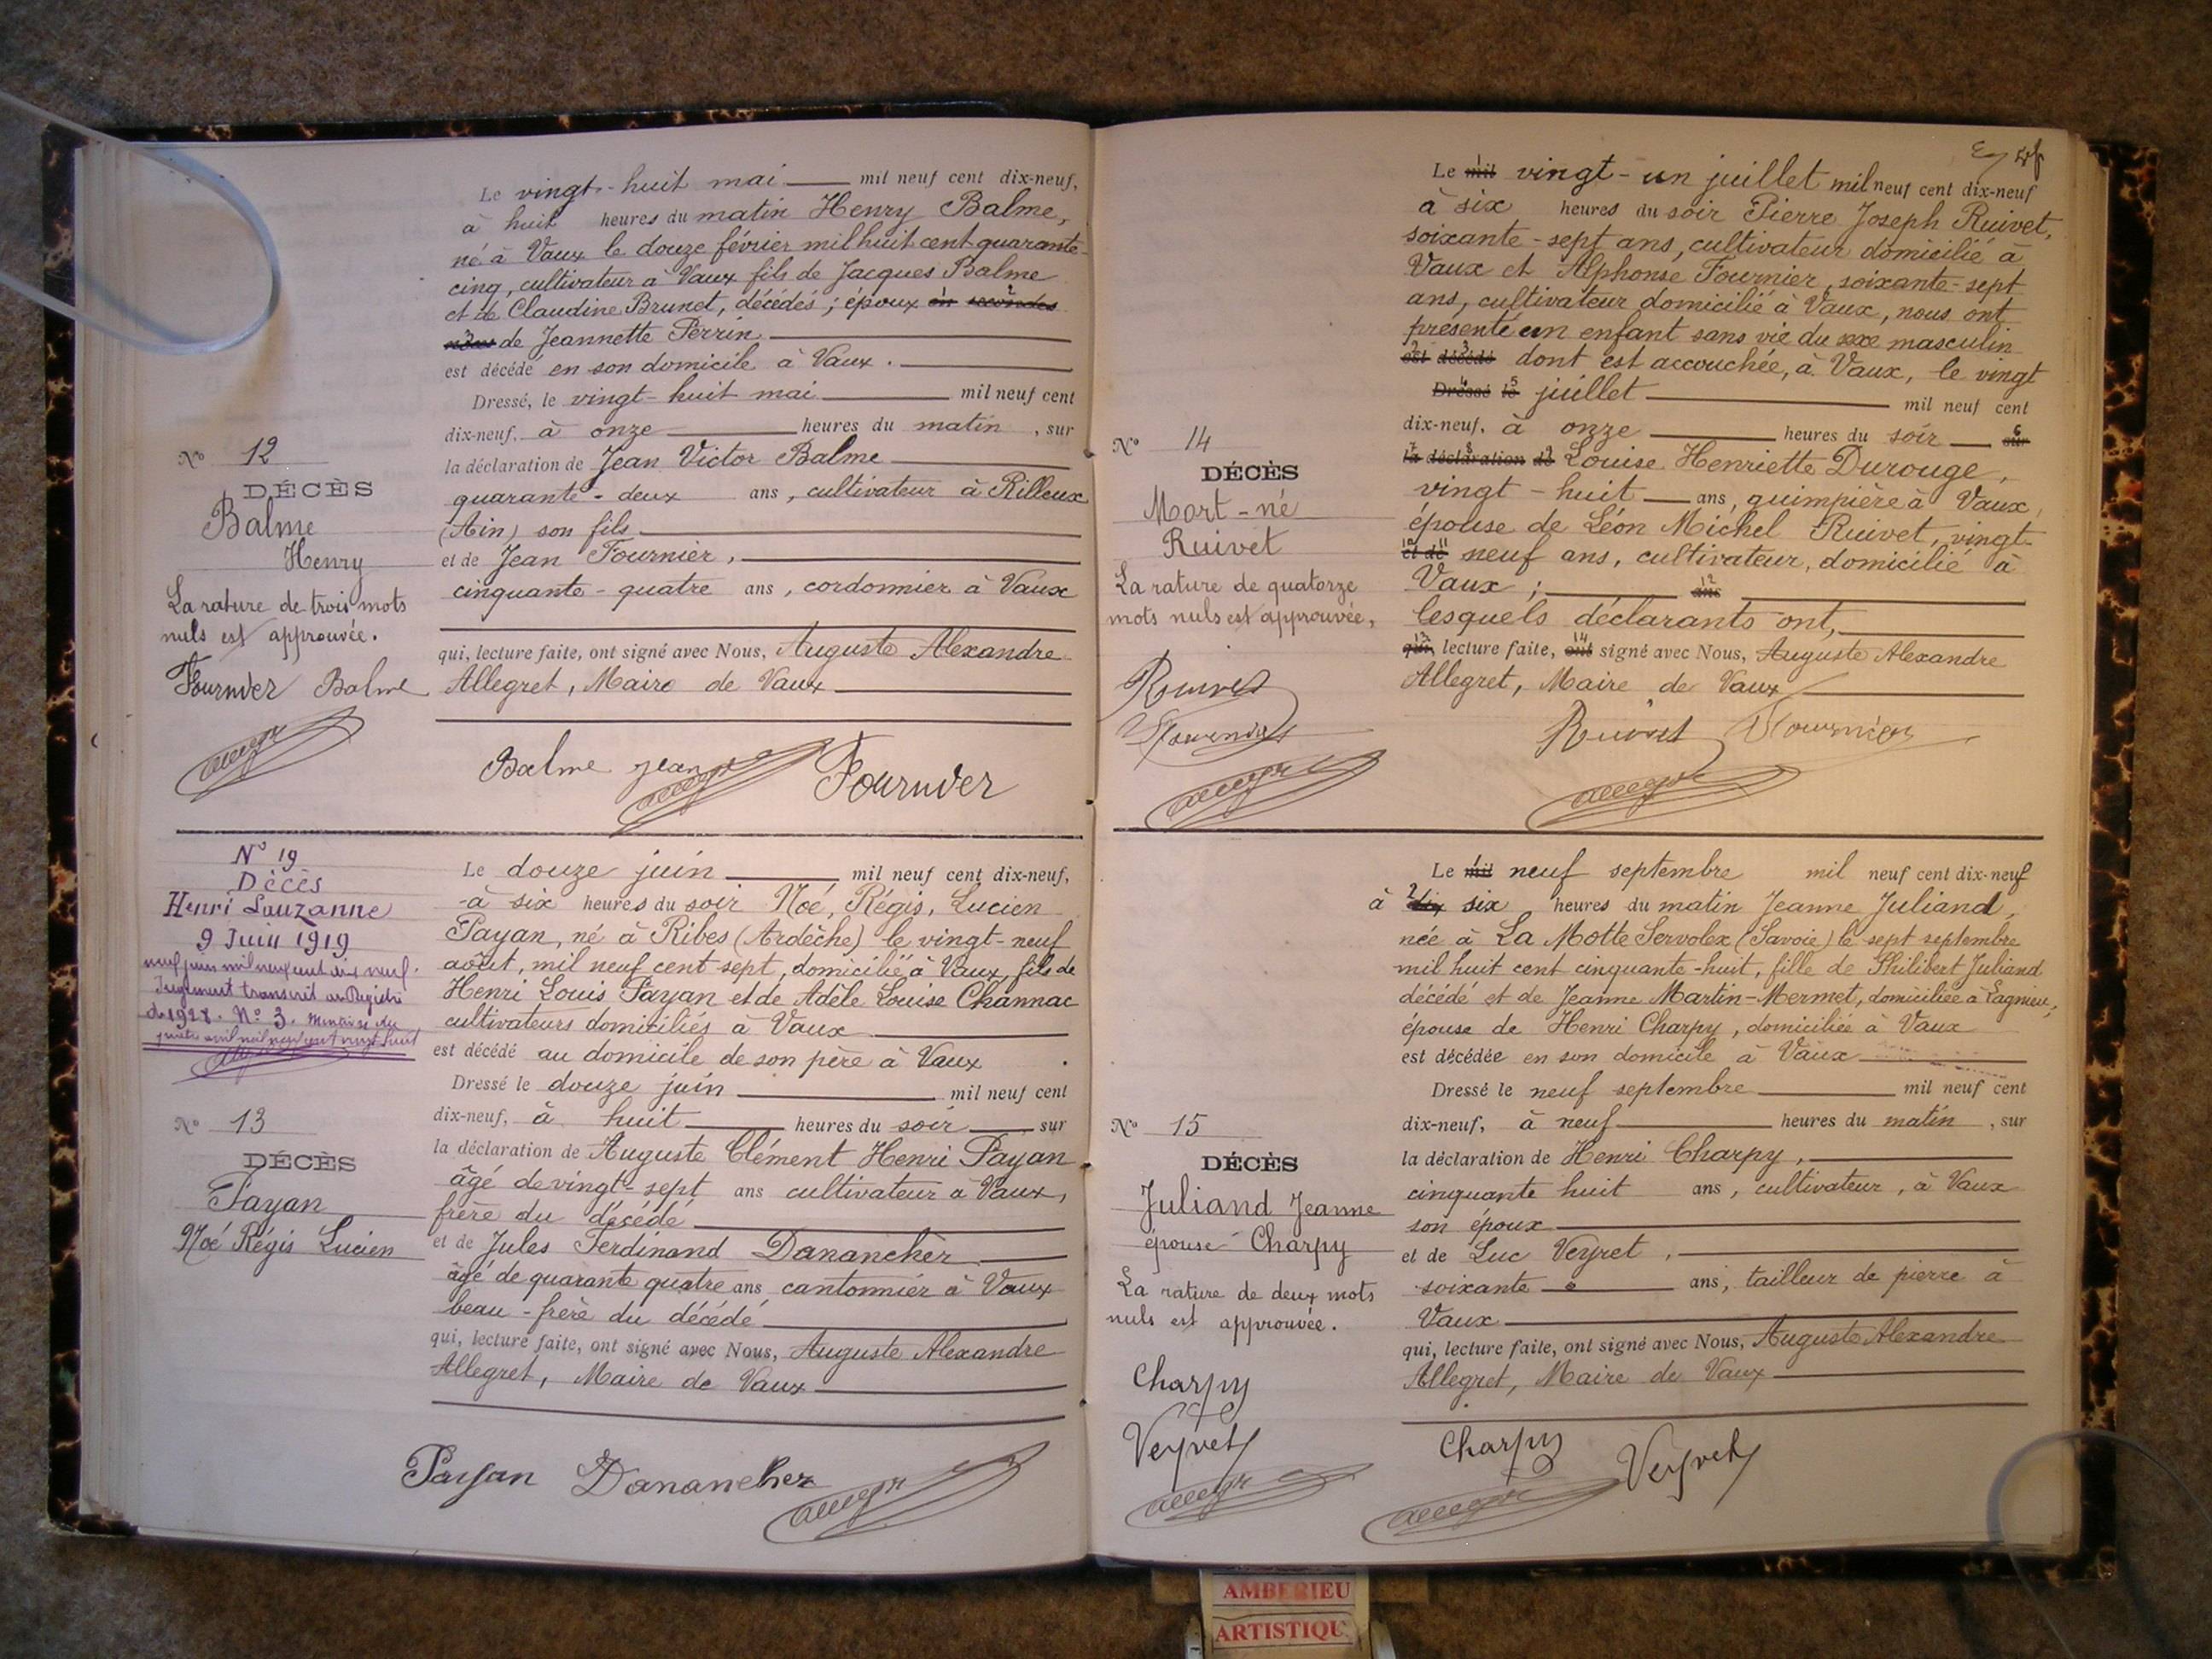 Le vingt-huit mai mil neuf cent dix-neuf,
à huit heures du matin Henry Balme,
né à Vaux le douze février mil huit cent quarante-
cinq, cultivateur à Vaux fils de Jacques Balme
et de Claudine Brunet, décédés ; époux en secondes
noces de Jeannette Perrin
est décédé en son domicile à Vaux.
Dressé, le vingt-huit mai mil neuf cent
dix-neuf, à onze heures du matin, sur
la déclaration de Jean Victor Balme
quarante-deux ans, cultivateur à Rilleux
(Ain) son fils
et de Jean Fournier,
cinquante-quatre ans, cordonnier à Vaux
qui, lecture faite, ont signé avec Nous, Auguste Alexandre
Allegret, Maire de Vaux
N° 12
DÉCÈS
Balme
Henry
La rature de trois mots
nuls est approuvée.
Fournier Balme
Allegret
Balme Jean Allegret Fournier
N° 19
Décès
Henri Lauzanne
9 Juin 1919
neuf juin mil neuf cent dix neuf.
Jugement transcrit au Registre
de 1928. N° 3. Mention du
avril mil neuf cent vingt huit
Le douze juin mil neuf cent dix-neuf,
à six heures du soir Noé, Régis, Lucien
Payan, né à Ribes (Ardèche) le vingt-neuf
août, mil neuf cent sept, domicilié à Vaux, fils de
Henri Louis Payan et de Adèle Louise Channac
cultivateurs domiciliés à Vaux
est décédé au domicile de son père à Vaux.
Dressé le douze juin mil neuf cent
dix-neuf, à huit heures du soir sur
la déclaration de Auguste Clément Henri Payan
âgé de vingt-sept ans cultivateur à Vaux,
frère du décédé
et de Jules Ferdinand Dananchèr
âgé de quarante quatre ans cantonnier à Vaux
beau-frère du décédé
qui, lecture faite, ont signé avec Nous, Auguste Alexandre
Allegret, Maire de Vaux
N° 13
DÉCÈS
Payan
Noé Régis Lucien
Payan Danancher Allegret
Le mil vingt-un juillet mil neuf cent dix-neuf
à six heures du soir Pierre Joseph Ruivet,
soixante-sept ans, cultivateur domicilié à
Vaux et Alphonse Fournier, soixante-sept
ans, cultivateur domicilié à Vaux, nous ont
présenté un enfant sans vie du sexe masculin
est décédé dont est accouchée, à Vaux, le vingt
Dressé le juillet mil neuf cent
dix-neuf, à onze heures du soir sur
la déclaration de Louise Henriette Durouge,
vingt-huit ans, guimpière à Vaux,
épouse de Léon Michel Ruivet, vingt-
et de neuf ans, cultivateur, domicilié à
Vaux ; ans
lesquels déclarants ont,
qui, lecture faite, ont signé avec Nous, Auguste Alexandre
Allegret, Maire de Vaux
N° 14
DÉCÈS
Mort-né
Ruivet
La rature de quatorze
mots nuls est approuvée,
Ruivet
Fournier
Allegret
Ruivet Fournier
Allegret
Le mil neuf septembre mil neuf cent dix-neuf
à dix six heures du matin Jeanne Juliand,
née à La Motte Servolex (Savoie) le sept septembre
mil huit cent cinquante-huit, fille de Philibert Juliand
décédé et de Jeanne Martin-Mermet, domiciliée à Lagnieu,
épouse de Henri Charpy, domiciliée à Vaux
est décédée en son domicile à Vaux
Dressé le neuf septembre mil neuf cent
dix-neuf, à neuf heures du matin, sur
la déclaration de Henri Charpy,
cinquante huit ans, cultivateur, à Vaux
son époux
et de Luc Veyret,
soixante ans, tailleur de pierre à
Vaux
qui, lecture faite, ont signé avec Nous, Auguste Alexandre
Allegret, Maire de Vaux
N° 15
DÉCÈS
Juliand Jeanne
épouse Charpy
La rature de deux mots
nuls est approuvée.
Charpy
Veyret
Allegret
Charpy Veyret
Allegret
AMBERIEU
ARTISTIQU